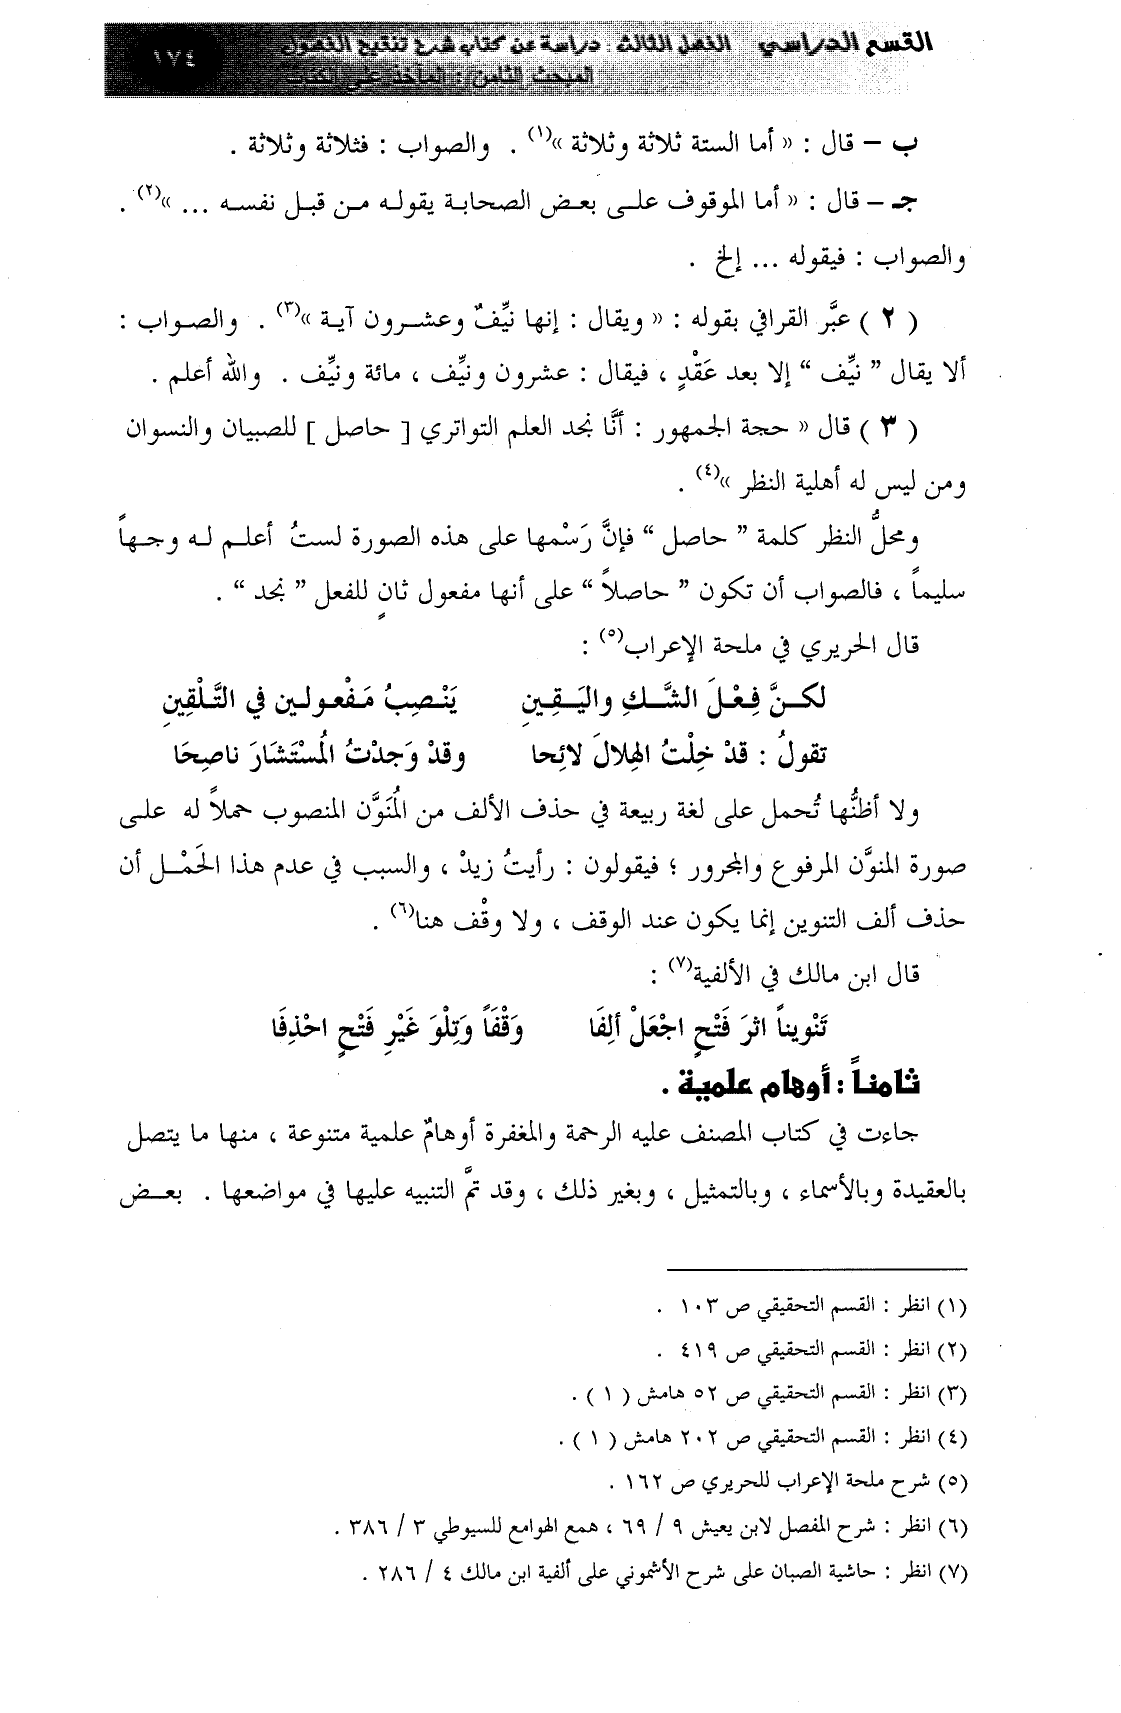 القسم الدراسي الفصل الثالث : دراسة عن كتاب شرح تنقيح الفصول
المبحث الثامن : المآخذ على الكتاب
١٧٤
ب – قال : « أما الستة ثلاثة وثلاثة »(١) . والصواب : فثلاثة وثلاثة .
جـ – قال : « أما الموقوف علـى بعـض الصحابـة يقولـه مـن قبـل نفسـه ... »(٢) .
والصواب : فيقوله ... إلخ .
( ٢ ) عبَّر القرافي بقوله : « ويقال : إنها نيِّفٌ وعشـرون آيـة »(٣) . والصـواب :
ألا يقال ” نيِّف “ إلا بعد عَقْدٍ ، فيقال : عشرون ونيِّف ، مائة ونيِّف . والله أعلم .
( ٣ ) قال « حجة الجمهور : أنَّا نجد العلم التواتري [ حاصل ] للصبيان والنسوان
ومن ليس له أهلية النظر »(٤) .
ومحلُّ النظر كلمة ” حاصل “ فإنَّ رَسْمها على هذه الصورة لستُ أعلـم لـه وجـهاً
سليماً ، فالصواب أن تكون ” حاصلاً “ على أنها مفعول ثانٍ للفعل ” نجد “ .
قال الحريري في ملحة الإعراب(٥) :
لكـنَّ فِعْـلَ الشَّـكِ واليَـقِـينِ يَنْـصِبُ مَـفْعـولـين في التَّـلْقِينِ
تقولُ : قدْ خِلْتُ الهِلالَ لائِحا وقدْ وَجدْتُ الُمسْتَشَارَ ناصِحَا
ولا أظنُّها تُحمل على لغة ربيعة في حذف الألف من الُمنَوَّن المنصوب حملاً له علـى
صورة المنوَّن المرفوع والمجرور ؛ فيقولون : رأيتُ زيدْ ، والسبب في عدم هذا الحَمْـل أن
حذف ألف التنوين إنما يكون عند الوقف ، ولا وقْف هنا(٦) .
قال ابن مالك في الألفية(٧) :
تَنْويناً اثرَ فَتْحٍ اجْعَلْ ألِفَا وَقْفَاً وَتِلْوَ غَيْرِ فَتْحٍ احْذِفَا
ثامناً : أوهام علمية .
جاءت في كتاب المصنف عليه الرحمة والمغفرة أوهامٌ علمية متنوعة ، منها ما يتصل
بالعقيدة وبالأسماء ، وبالتمثيل ، وبغير ذلك ، وقد تمَّ التنبيه عليها في مواضعها . بعـض
(١) انظر : القسم التحقيقي ص ١٠٣ .
(٢) انظر : القسم التحقيقي ص ٤١٩ .
(٣) انظر : القسم التحقيقي ص ٥٢ هامش ( ١ ) .
(٤) انظر : القسم التحقيقي ص ٢٠٢ هامش ( ١ ) .
(٥) شرح ملحة الإعراب للحريري ص ١٦٢ .
(٦) انظر : شرح المفصل لابن يعيش ٩ / ٦٩ ، همع الهوامع للسيوطي ٣ / ٣٨٦ .
(٧) انظر : حاشية الصبان على شرح الأشموني على ألفية ابن مالك ٤ / ٢٨٦ .